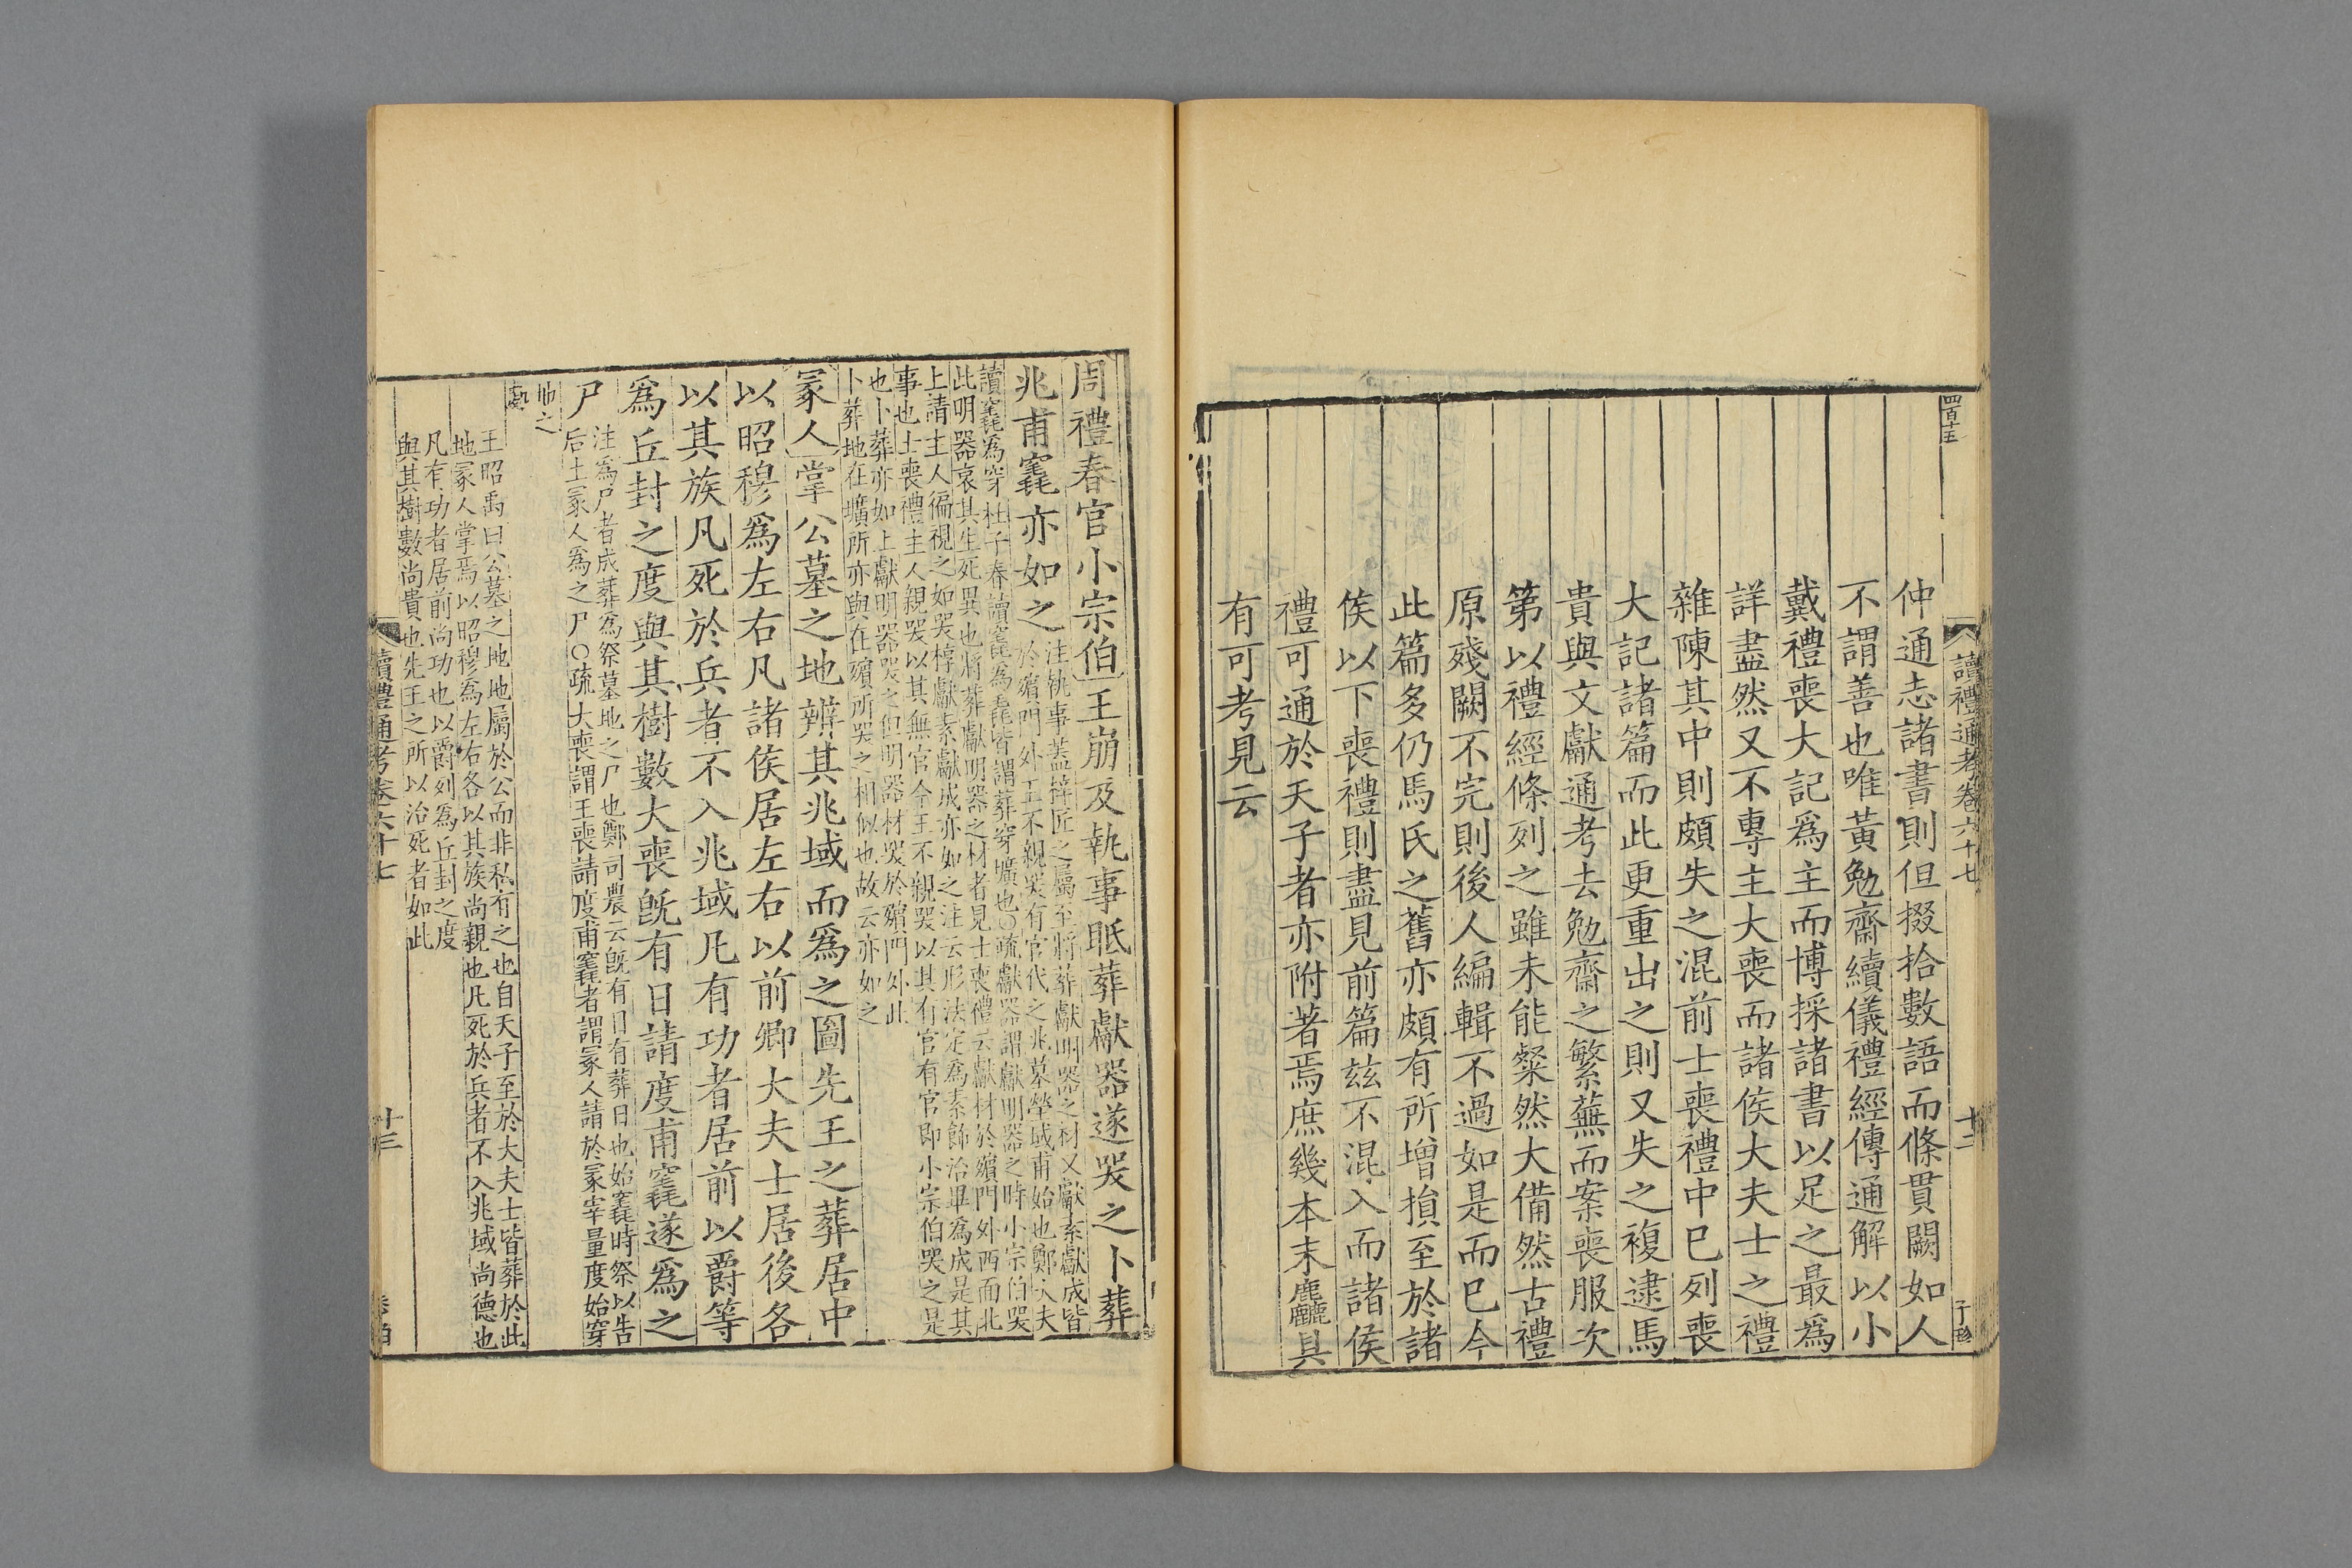 四百十五
讀禮通考卷六十七
十二
仲通志諸書則但掇拾數語而條貫闕如人
不謂善也唯黃勉齋續儀禮經傳通解以小
戴禮喪大記爲主而博採諸書以足之最爲
詳盡然又不專主大喪而諸侯大夫士之禮
雜陳其中則頗失之混前士喪禮中已列喪
大記諸篇而此更重出之則又失之複逮馬
貴與文獻通考去勉齋之繁蕪而案喪服次
第以禮經條列之雖未能粲然大備然古禮
原殘闕不完則後人編輯不過如是而已今
此篇多仍馬氏之舊亦頗有所增損至於諸
侯以下喪禮則盡見前篇兹不混入而諸侯
禮可通於天子者亦附著焉庶幾本末麤具
有可考見云
周禮春官小宗伯王崩及執事眡葬獻器遂哭之卜葬
兆甫竁亦如之
注執事蓋梓匠之屬至將葬獻明器之材又獻素獻成皆
於殯門外王不親哭有官代之兆墓塋域甫始也鄭大夫
讀竁爲穿杜子春讀竁爲毳皆謂葬穿壙也○疏獻器謂獻明器之時小宗伯哭
此明器哀其生死異也將葬獻明器之材者見士喪禮云獻材於殯門外西面北
上請主人徧視之如哭椁獻素獻成亦如之注云形法定爲素飾治畢爲成是其
事也士喪禮主人親哭以其無官今王不親哭以其有官有官即小宗伯哭之是
也卜葬亦如上獻明器哭之但明器材哭於殯門外此
卜葬地在壙所亦與在殯所哭之相似也故云亦如之
冢人掌公墓之地辨其兆域而爲之圖先王之葬居中
以昭穆爲左右凡諸侯居左右以前卿大夫士居後各
以其族凡死於兵者不入兆域凡有功者居前以爵等
爲丘封之度與其樹數大喪旣有日請度甫竁遂爲之
尸
注爲尸者成葬爲祭墓地之尸也鄭司農云旣有日有葬日也始竁時祭以告
后土冢人爲之尸○疏大喪謂王喪請度甫竁者謂冢人請於冢宰量度始穿
地之
處
王昭禹曰公墓之地地屬於公而非私有之也自天子至於大夫士皆葬於此
地冢人掌焉以昭穆爲左右各以其族尚親也凡死於兵者不入兆域尚德也
凡有功者居前尚功也以爵列爲丘封之度
與其樹數尚貴也先王之所以治死者如此
讀禮通考卷六十七
十三